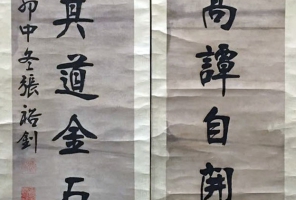 高譚自開
其道金石
卯中冬張裕釗